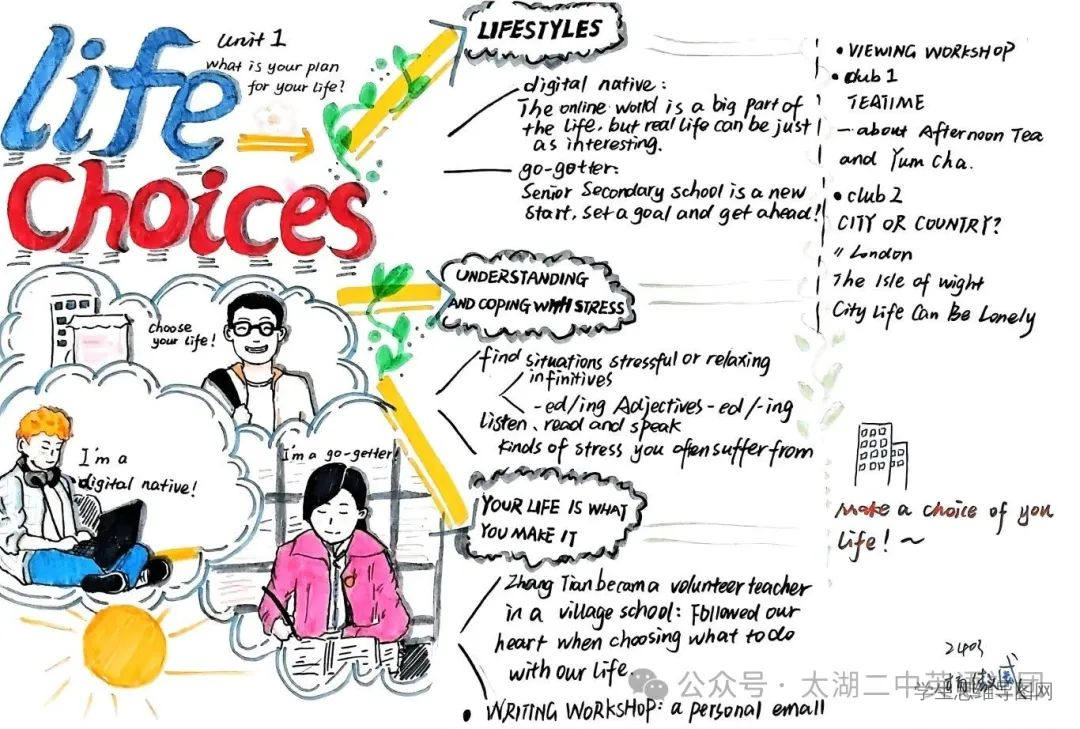 life
Choices
Unit 1
What is your plan
for your life?
LIFESTYLES
digital native:
The online world is a big part of
the life, but real life can be just
as interesting.
go-getter:
Senior Secondary school is a new
start, set a goal and get ahead!
UNDERSTANDING
AND COPING WITH STRESS
find situations stressful or relaxing
infinitives
-ed/ing Adjectives -ed/-ing
Listen, read and speak
kinds of stress you often suffer from
YOUR LIFE IS WHAT
YOU MAKE IT
Zhang Tian becam a volunteer teacher
in a village school: Followed our
heart when choosing what to do
with our life.
• WRITING WORKSHOP: a personal email
• VIEWING WORKSHOP
• club 1
TEATIME
— about Afternoon Tea
and Yum Cha.
• club 2
CITY OR COUNTRY?
" London
The Isle of wight
City Life Can Be Lonely
Make a choice of you
life! ~
choose
your life!
I'm a
digital native!
I'm a go-getter!
2403
公众号 · 太湖二中英
团
学生思维导图网